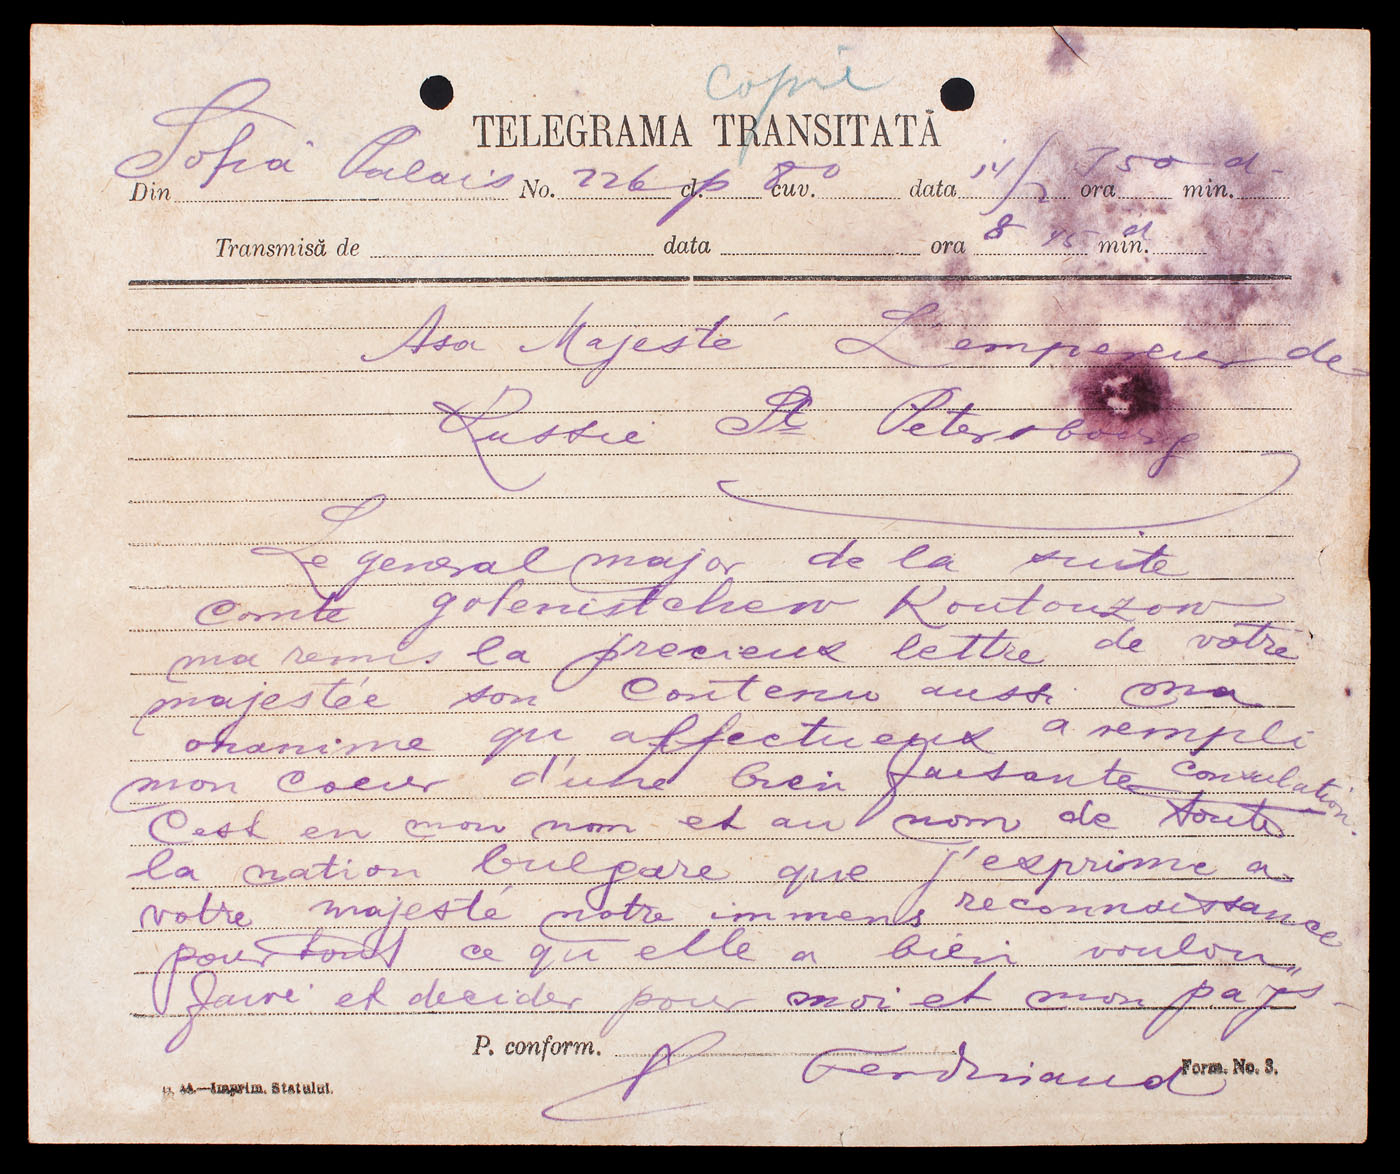 Copie
TELEGRAMA TRANSITATĂ
Din Sofia Palais No. 226 cl. p cuv. 80 data 14/2 ora 750 min. d
Transmisă de data ora 8 45 min. d
Asa Majesté L'empereur de
Russie St Petersbourg
Le general major de la suite
comte golenistchew Koutouzow
ma remis la precieux lettre de votre
majestée son contenu aussi ma
gnanime qu affectueux a rempli
mon coeur d'une bien faisante consulation.
C'est en mon nom et au nom de toute
la nation bulgare que j'exprime a
votre majesté notre immens reconnaissance
pour tout ce qu elle a bien voulou
faire et decider pour moi et mon pays -
P. conform. Ferdinand
Form. No. 3.
Imprim. Statului.